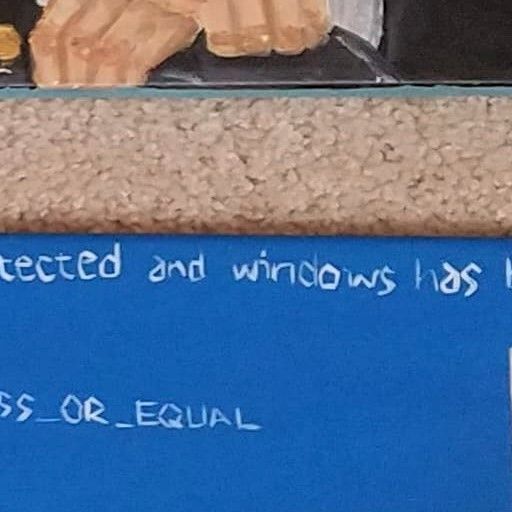 tected and windows has
SS_OR_EQUAL